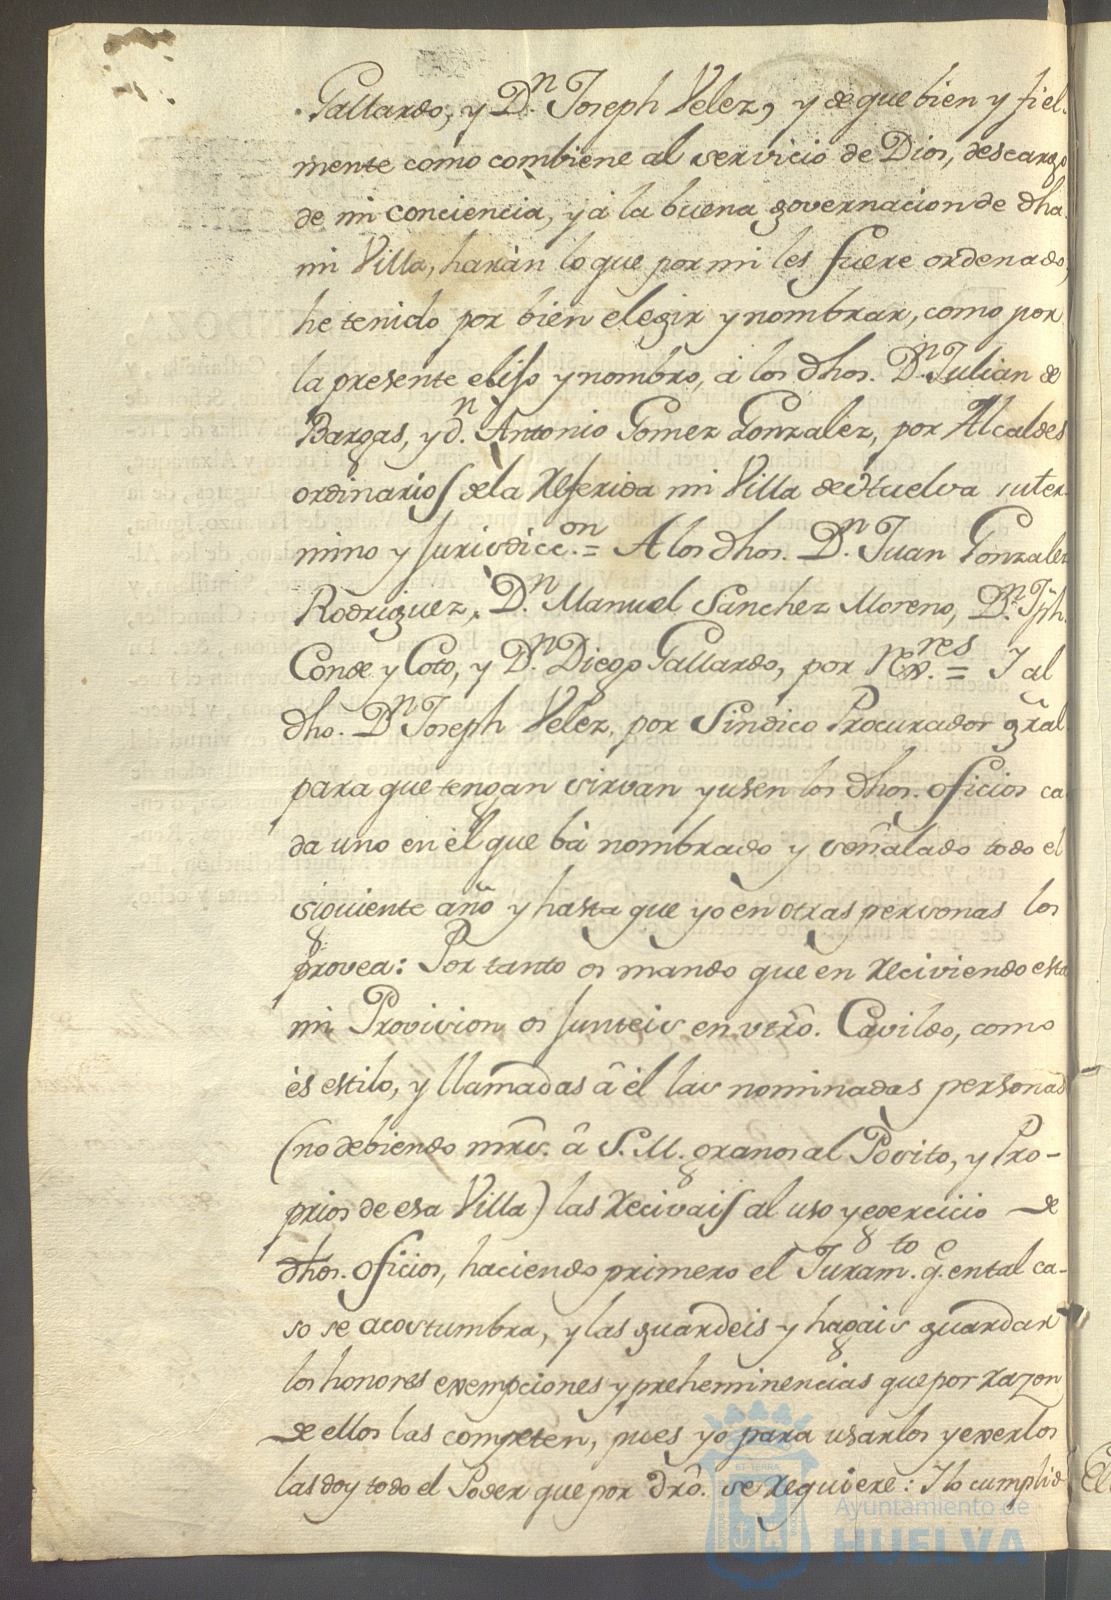 Gallardo, y D.n Joseph Velez, y de que bien y fiel-
mente como combiene al servicio de Dios, descargo
de mi conciencia, y á la buena governacion de dha.
mi Villa, harán lo que por mi les fuere ordenado,
he tenido por bien elegir y nombrar, como por
la presente elijo y nombro, á los dhos. D.n Julian de
Bargas, y d.n Antonio Gomez Gonzalez, por Alcaldes
ordinarios de la referida mi Villa de Huelva su ter-
mino y Jurisdicc.on = A los dhos. D.n Juan Gonzalez
Rodriguez, D.n Manuel Sanchez Moreno, D.n Jph.
Conde y Coto, y D.n Diego Gallardo, por Rex.res = Y al
dho. D.n Joseph Velez, por Sindico Procurador gral.
para que tengan sirvan y usen los dhos. oficios ca
da uno en él que bá nombrado y señalado todo el
siguiente año y hasta que yo en otras personas los
provea: Por tanto os mando que en reciviendo esta
mi Provision os junteis en vtro. Cavildo, como
és estilo, y llamadas â él las nominadas personas
(no debiendo mrs. â S. M. granos al Posito, y Pro-
prios de esa Villa) las recivais al uso y egercicio de
dhos. oficios, haciendo primero el Juram.to q.e en tal ca-
so se acostumbra, y las guardeis y hagais guardar
los honores exempciones y preheminencias que por razon
de ellos las competen, pues yo para usarlos y exerlos
las doy todo el Poder que por dro. se requiere: Y lo cumplid
Ayuntamiento de
HUELVA